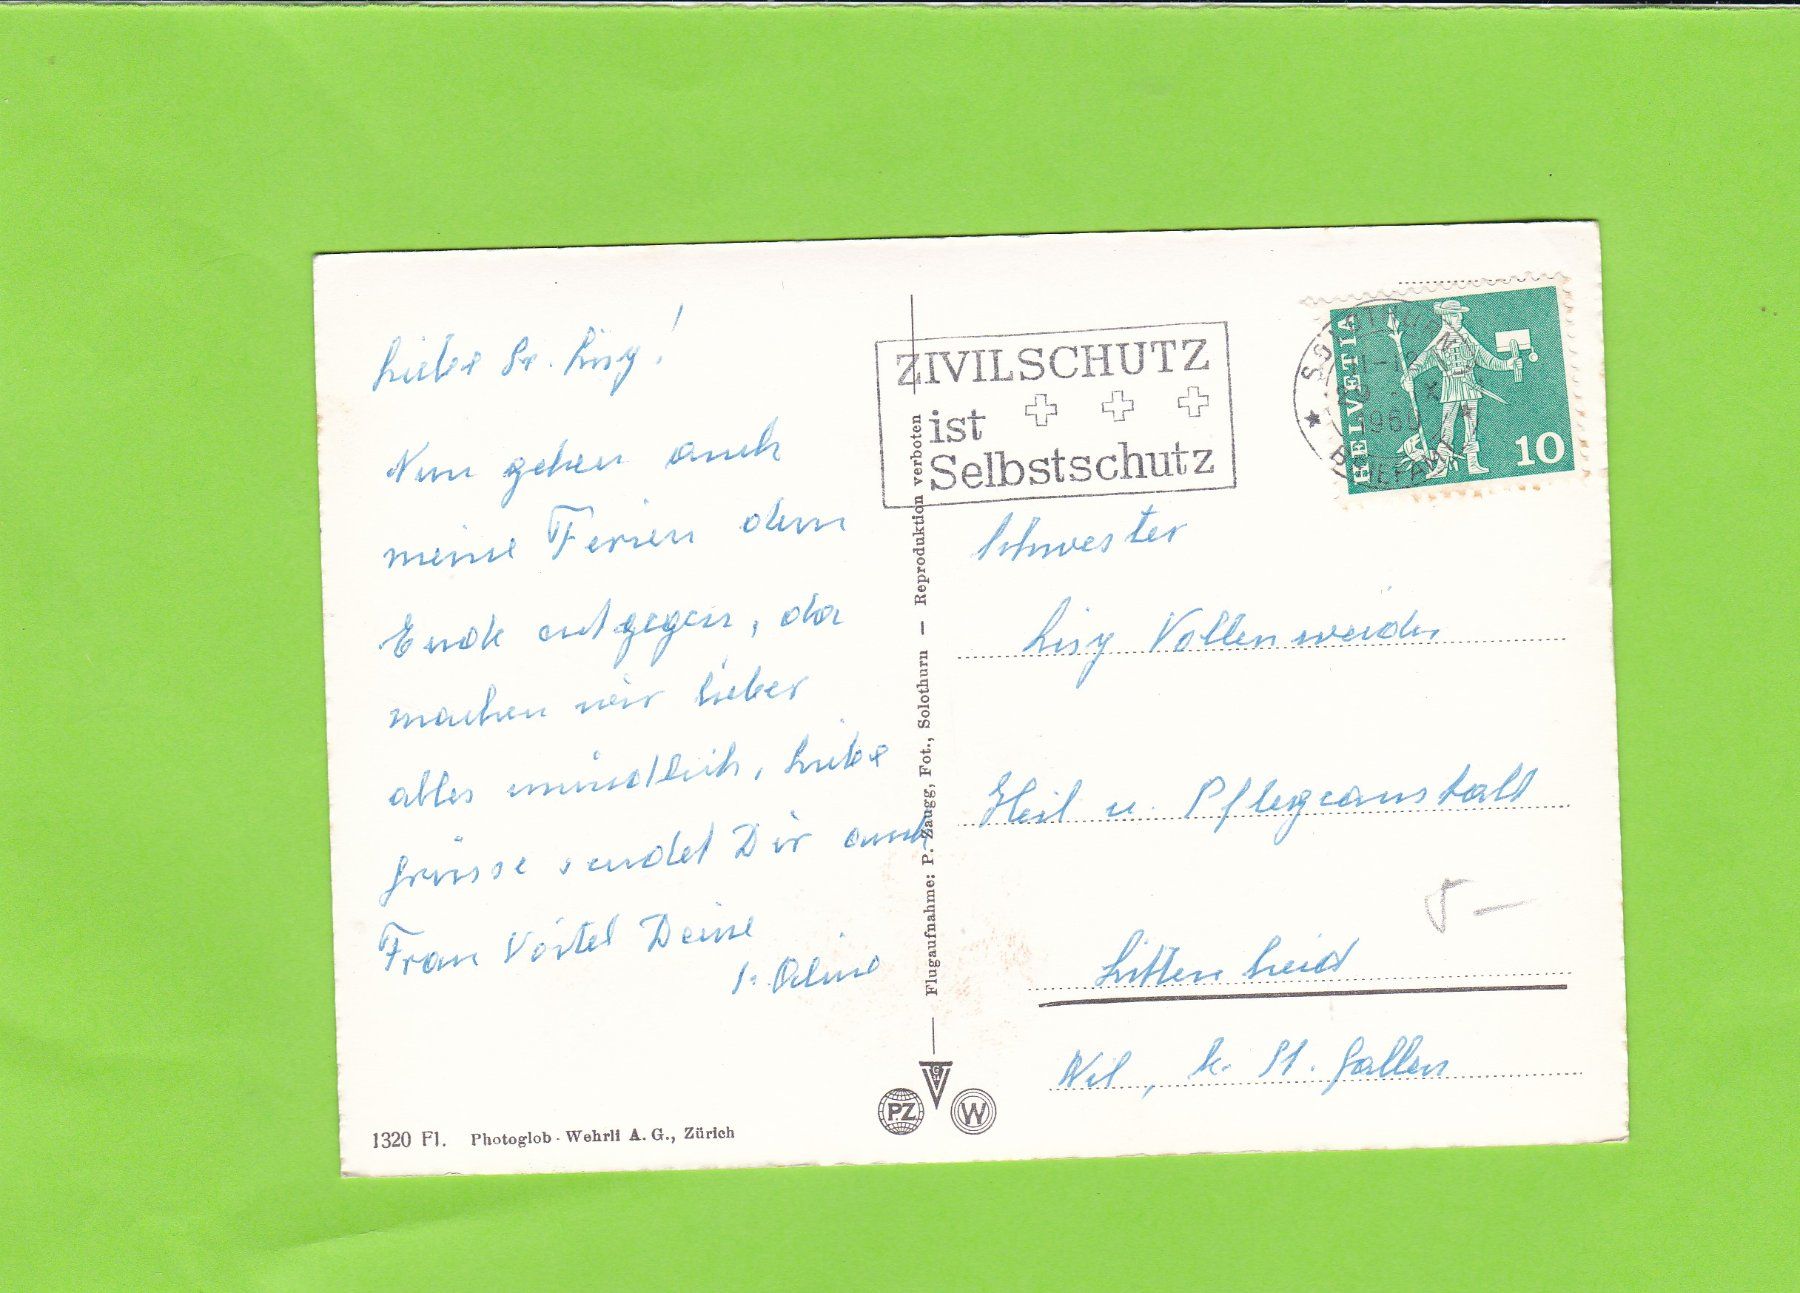 Liebe Sr. Lisy!
Nun gehen auch
meine Ferien dem
Ende entgegen, da
machen wir lieber
alles mündlich, Liebe
Grüsse sendet Dir auch
Frau Deine
ZIVILSCHUTZ
ist
Selbstschutz
HELVETIA
10
Schwester
Lisy Vollenweider
Heil u. Pflegeanstalt
Littenheid
Wil, k. St. Gallen
Flugaufnahme: P. Zaugg, Fot., Solothurn — Reproduktion verboten
PZ
W
1320 Fl. Photoglob-Wehrli A. G., Zürich